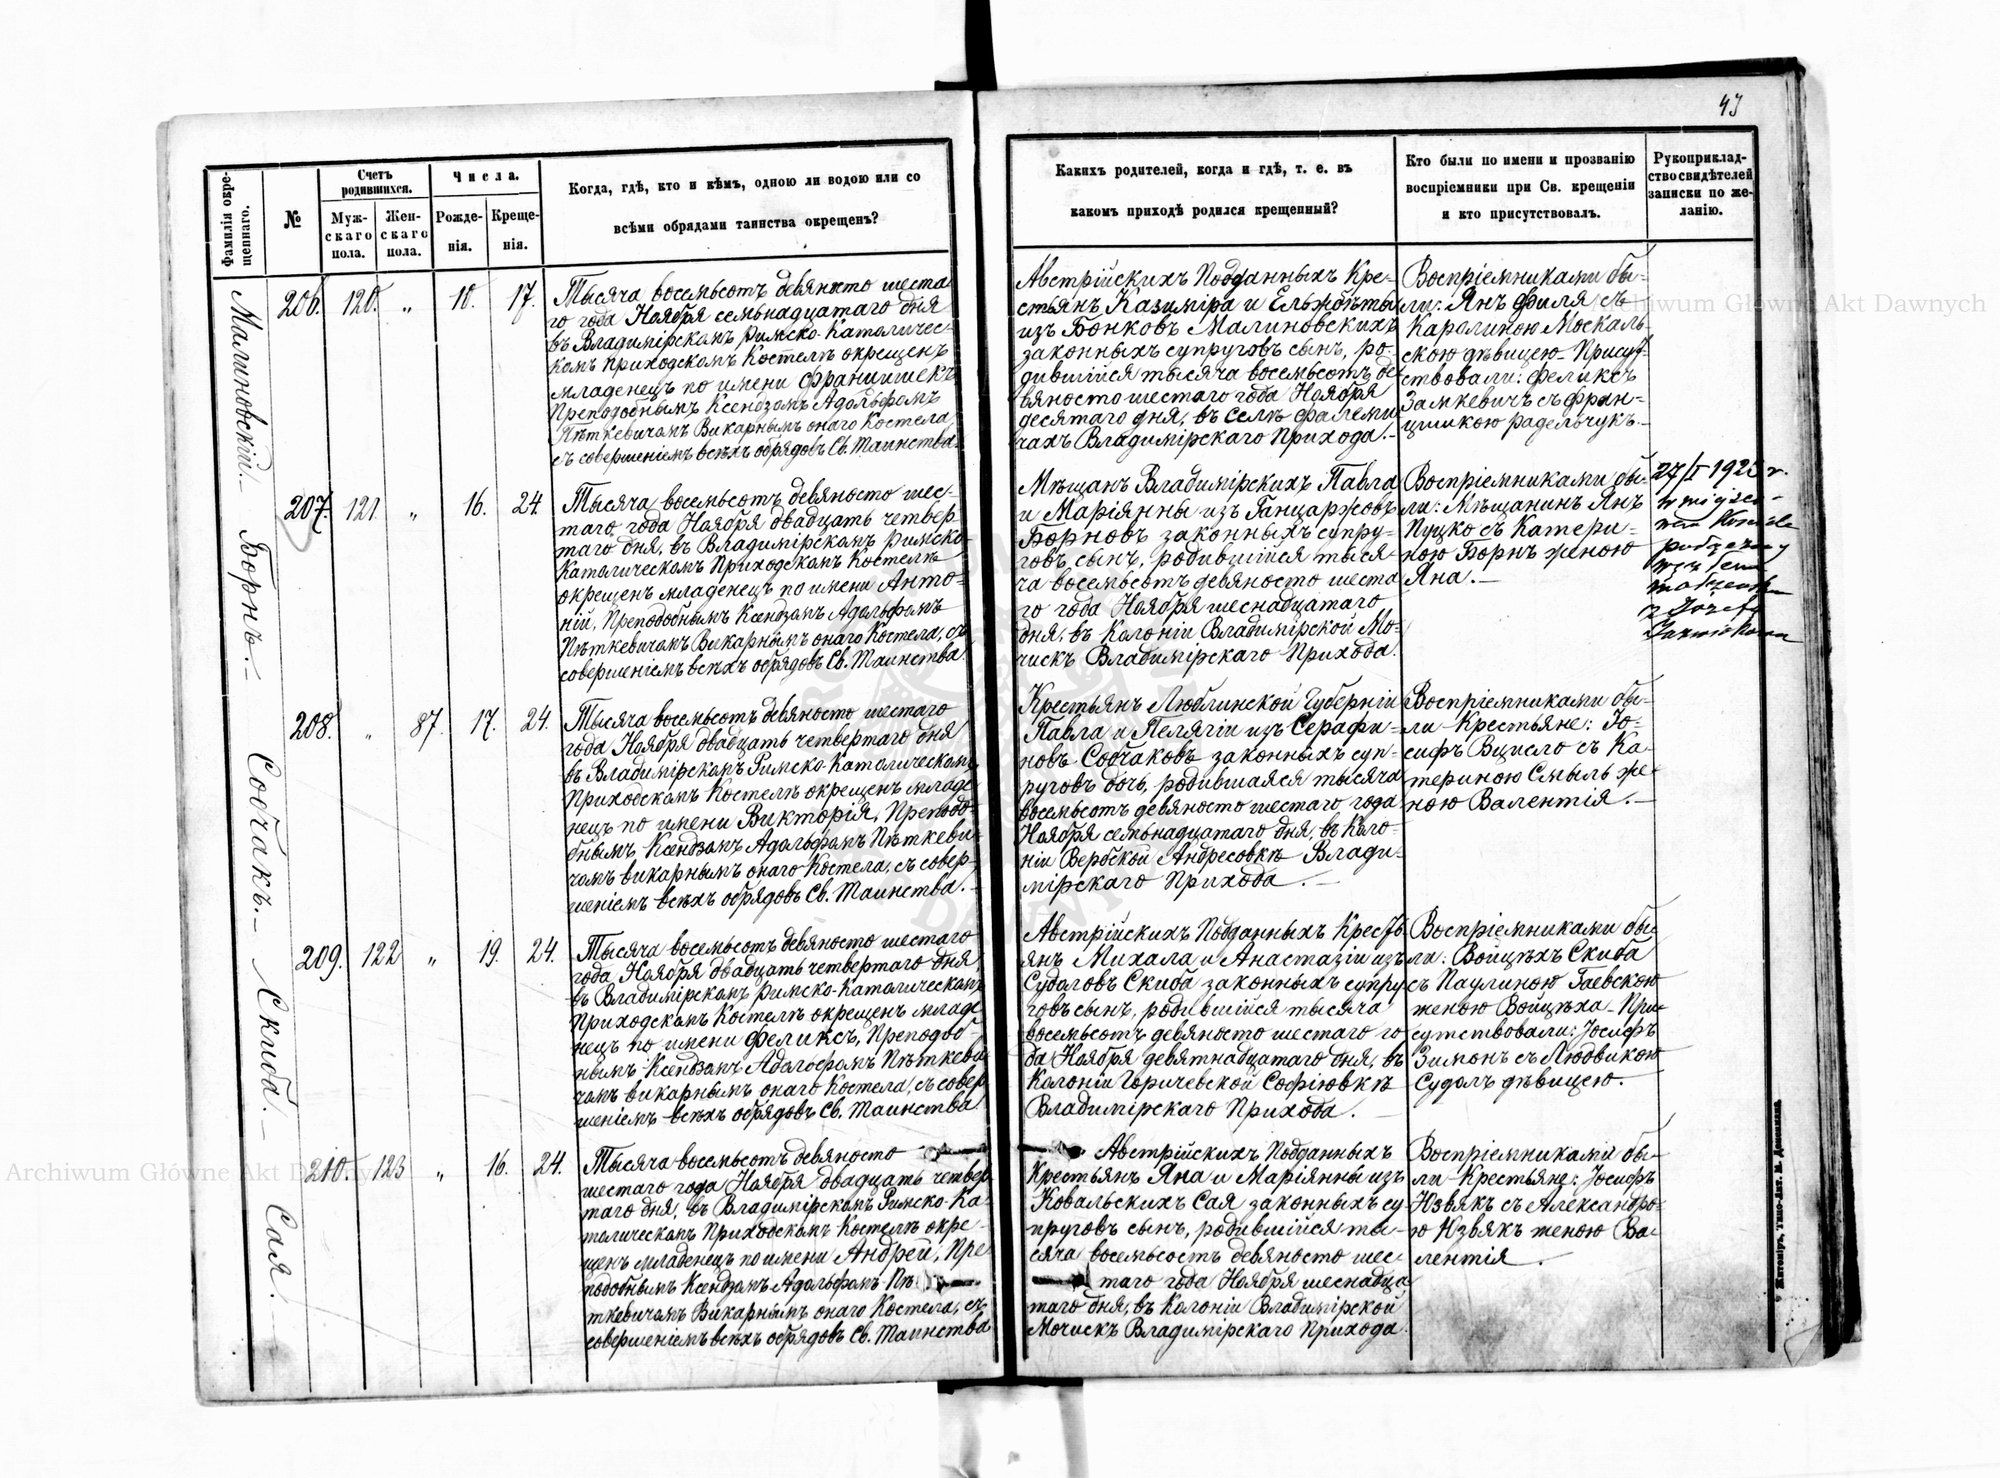 43
Фамилія окре-
щеннаго.
№
Счетъ
родившихся.
Муж-
скаго
пола.
Жен-
скаго
пола.
Числа.
Рожде-
нія.
Креще-
нія.
Когда, гдѣ, кто и кѣмъ, одною ли водою или со
всѣми обрядами таинства окрещенъ?
Какихъ родителей, когда и гдѣ, т. е. въ
какомъ приходѣ родился крещенный?
Кто были по имени и прозванію
воспріемники при Св. крещеніи
и кто присутствовалъ.
Рукоприклад-
ство свидѣтелей
записки по же-
ланію.
Малиновскій.
206. 120. „ 10. 17.
Тысяча восемьсотъ девяносто шеста
го года Ноября семьнадцатаго дня
въ Владимірскомъ Римско-Католичес-
комъ Приходскомъ Костелѣ окрещенъ
младенецъ по имени Францишекъ
Преподобнымъ Ксендзомъ Адольфомъ
Пѣткевичомъ Викарнымъ онаго Костела
съ совершеніемъ всѣхъ обрядовъ Св. Таинства
Австрійскихъ Подданныхъ Кре-
стьянъ Казиміра и Ельжбѣты
изъ Бонковъ Малиновскихъ
законныхъ супруговъ сынъ, ро-
дившійся тысяча восемьсотъ де
вяносто шестаго года Ноября
десятаго дня, въ селѣ Фалеми
чахъ Владимірскаго Прихода.
Воспріемниками бы-
ли: Янъ Филя съ
Каролиною Москаль-
скою дѣвицею – Присут-
ствовали: Феликсъ
Замкевичъ съ Фран-
цишкою Радельчукъ.
Борнъ.
207. 121. „ 16. 24
Тысяча восемьсотъ девяносто шес-
таго года Ноября двадцать четвер
таго дня, въ Владимірскомъ Римско-
Католическомъ Приходскомъ Костелѣ
окрещенъ младенецъ по имени Анто-
ній, Преподобнымъ Ксендзомъ Адольфомъ
Пѣткевичомъ Викарнымъ онаго Костела, съ
совершеніемъ всѣхъ обрядовъ Св. Таинства.
Мѣщанъ Владимірскихъ Павла
и Маріянны изъ Ганцаржовъ
Борновъ законныхъ супру-
говъ сынъ, родившійся тыся-
ча восемьсотъ девяносто шеста
го года Ноября шеснадцатаго
дня, въ Колоніи Владимірской Мо-
чискъ Владимірскаго Прихода.
Воспріемниками бы-
ли: Мѣщанинъ Янъ
Пуцко съ Катери-
ною Борнъ женою
Яна.
Собчакъ.
208. „ 87. 17. 24.
Тысяча восемьсотъ девяносто шестаго
года Ноября двадцать четвертаго дня
въ Владимірскомъ Римско-Католическомъ
Приходскомъ Костелѣ окрещенъ младе
нецъ по имени Викторія, Преподо-
бнымъ Ксендзомъ Адольфомъ Пѣткеви-
чомъ викарнымъ онаго Костела, съ совер-
шеніемъ всѣхъ обрядовъ Св. Таинства.
Крестьянъ Люблинской Губерніи
Павла и Пелягіи изъ Серафи-
новъ Собчаковъ законныхъ суп-
руговъ дочь, родившаяся тысяча
восемьсотъ девяносто шестаго года
Ноября семьнадцатаго дня, въ Коло-
ніи Вербской Андресовкѣ Влади-
мірскаго Прихода.
Воспріемниками бы-
ли Крестьяне: Іо-
сифъ Вцисло съ Ка-
териною Смыль же-
ною Валентія.
Скиба.
209. 122 „ 19. 24.
Тысяча восемьсотъ девяносто шестаго
года Ноября двадцать четвертаго дня,
въ Владимірскомъ Римско-Католическомъ
Приходскомъ Костелѣ окрещенъ младе
нецъ по имени Феликсъ, Преподоб-
нымъ Ксендзомъ Адольфомъ Пѣткеви
чомъ викарнымъ онаго Костела, съ совер
шеніемъ всѣхъ обрядовъ Св. Таинства.
Австрійскихъ Подданныхъ Кресть
янъ Михала и Анастазіи изъ
Судоловъ Скиба законныхъ супру
говъ сынъ, родившійся тысяча
восемьсотъ девяносто шестаго го
да Ноября девятнадцатаго дня, въ
Колоніи Горичевской Софіювкѣ
Владимірскаго Прихода.
Воспріемниками бы-
ли: Войцѣхъ Скиба
съ Паулиною Гаевскою
женою Войцѣха – При-
сутствовали: Іосифъ
Зимонъ съ Людвикою
Судолъ дѣвицею.
Сая.
210. 123 „ 16. 24.
Тысяча восемьсотъ девяносто
шестаго года Ноября двадцать четвер
таго дня, въ Владимірскомъ Римско-Ка-
толическомъ Приходскомъ Костелѣ окре-
щенъ младенецъ по имени Андрей, Пре
подобнымъ Ксендзомъ Адольфомъ Пѣ
ткевичомъ Викарнымъ онаго Костела, съ
совершеніемъ всѣхъ обрядовъ Св. Таинства
Австрійскихъ Подданныхъ
Крестьянъ Яна и Маріянны изъ
Ковальскихъ Сая законныхъ су
пруговъ сынъ, родившійся ты-
сяча восемьсостъ девяносто шес-
таго года Ноября шеснадца
таго дня, въ Колоніи Владимірской
Мочискъ Владимірскаго Прихода.
Воспріемниками бы-
ли Крестьяне: Іосифъ
Юзвякъ съ Александро-
ю Юзвякъ женою Ва-
лентія.
Archiwum Główne Akt Dawnych
Archiwum Główne Akt Dawnych